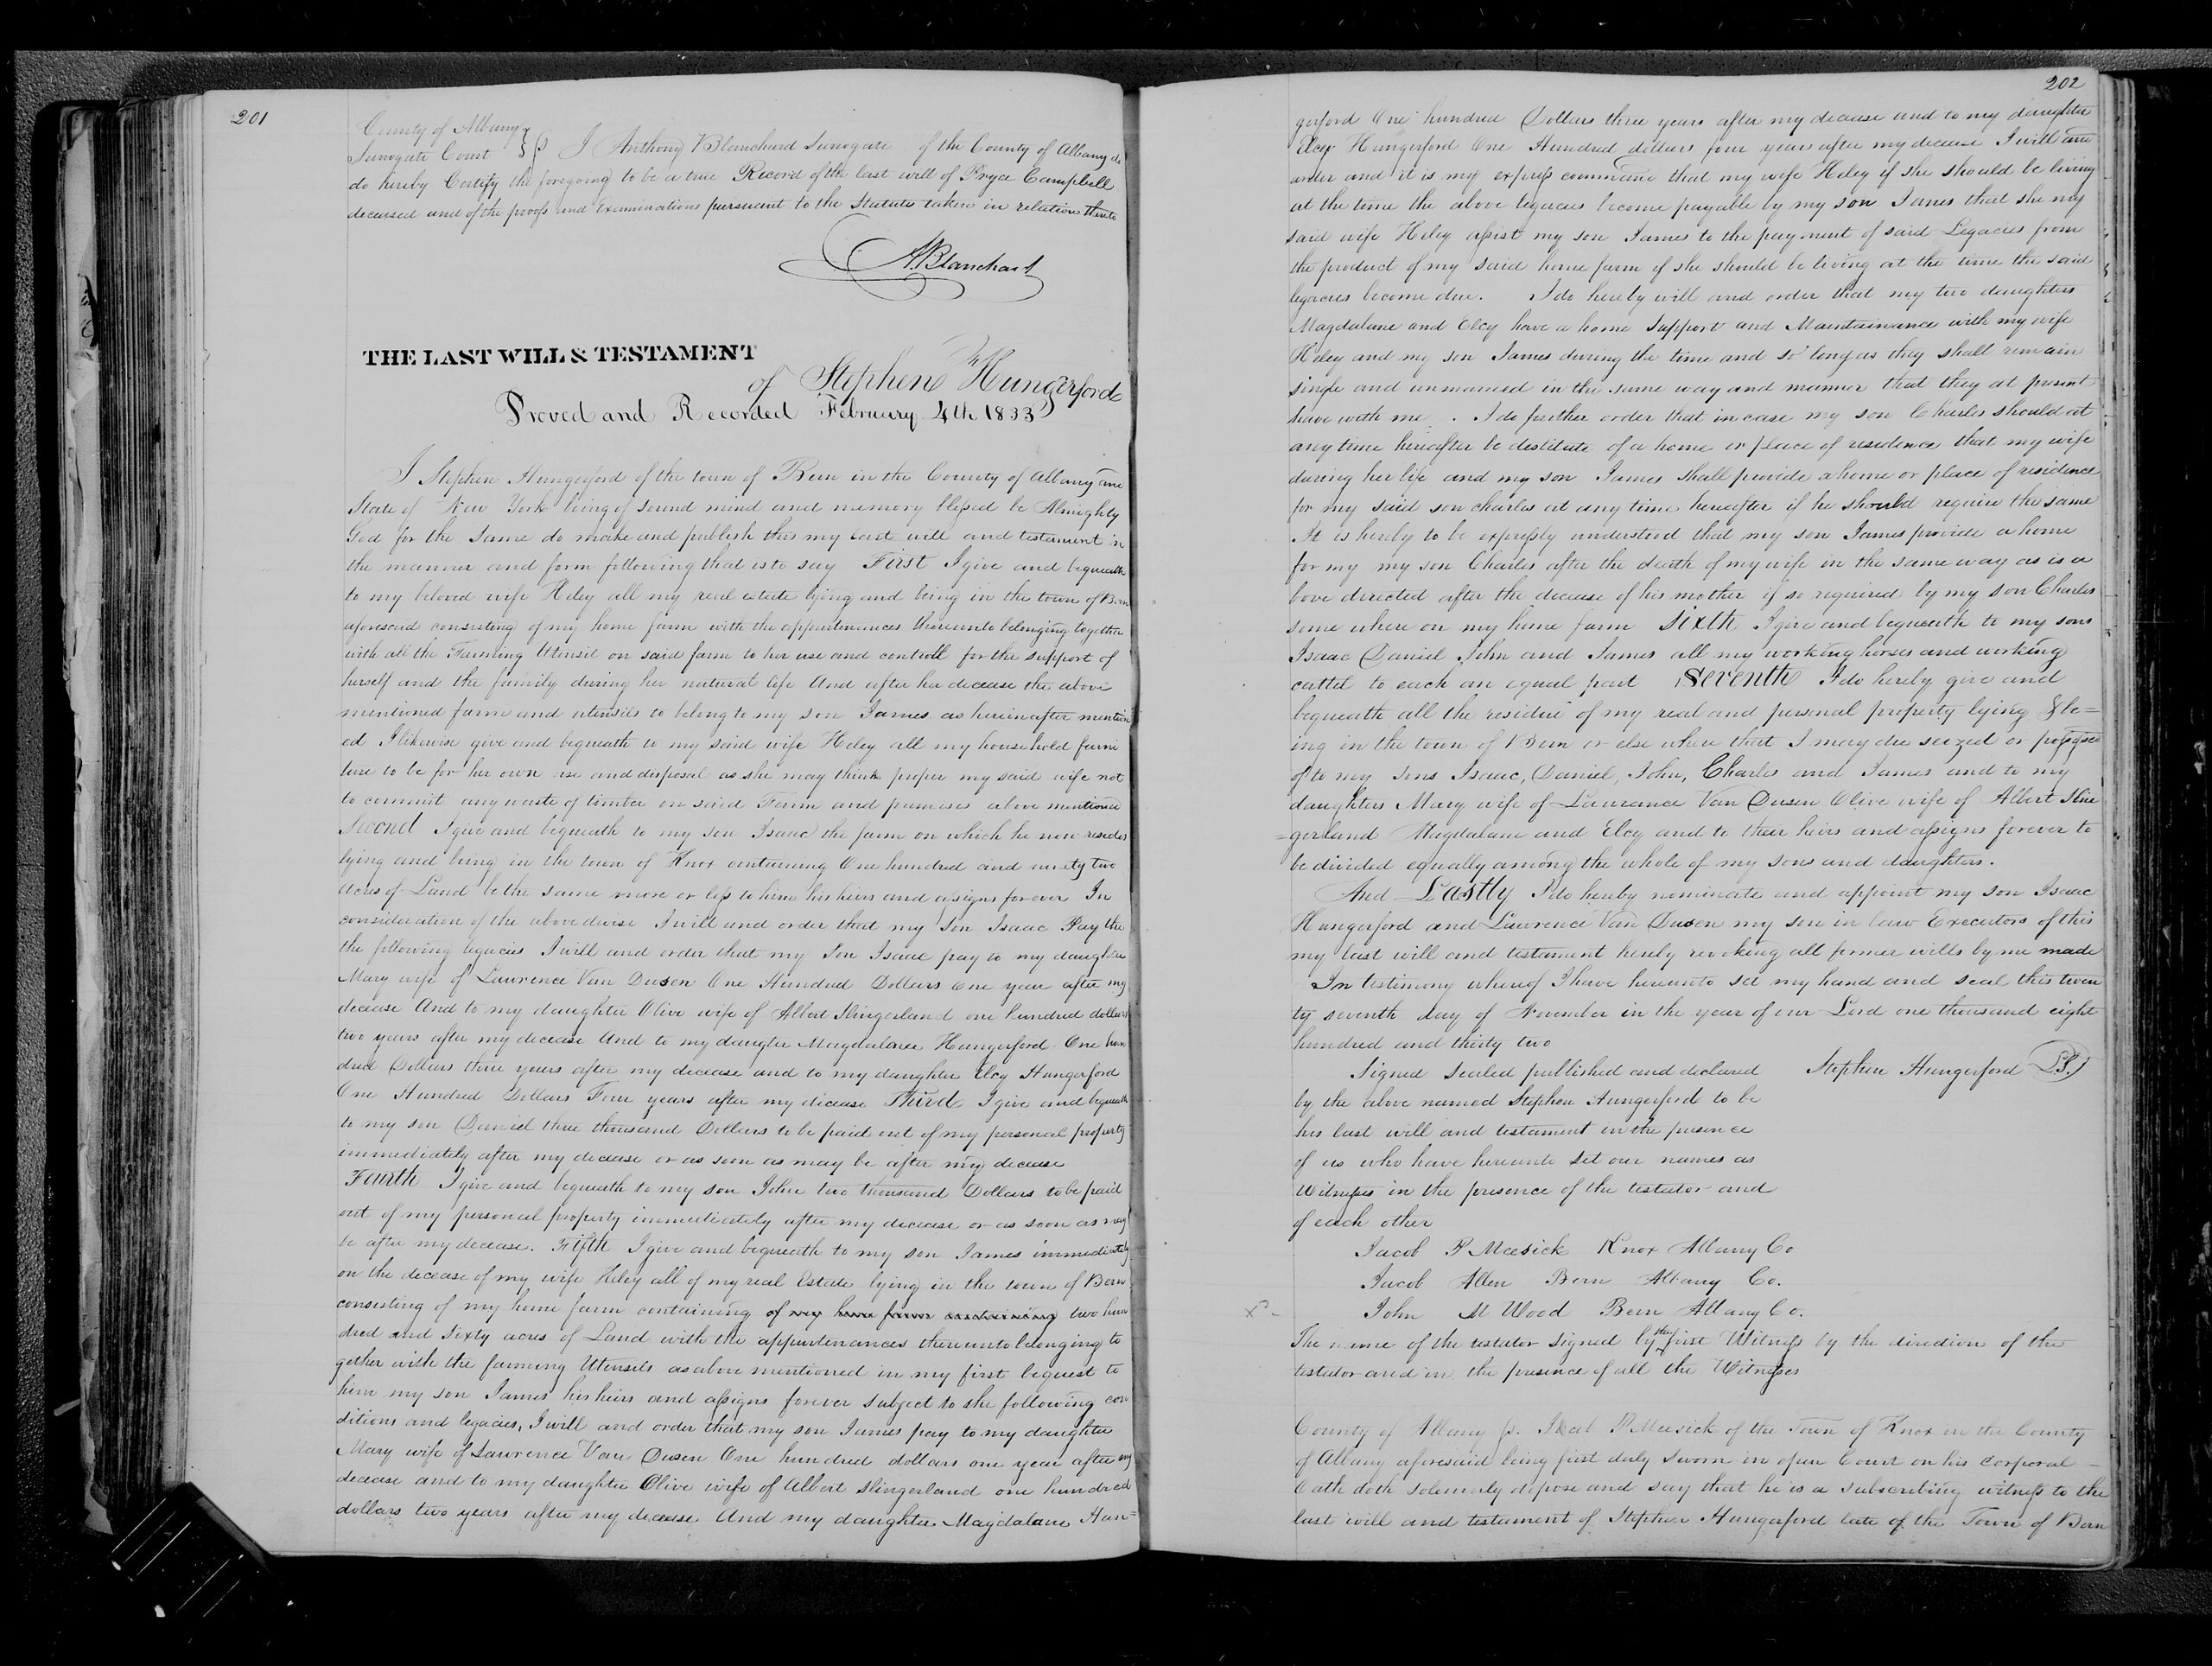 201
County of Albany
Surrogate Court } ss I Anthony Blanchard Surrogate of the County of Albany do
do hereby Certify the foregoing to be a true Record of the last will of Pryce Campbell
deceased and of the proofs and Examinations pursuant to the Statute taken in relation thereto
A. Blanchard
THE LAST WILL & TESTAMENT
of Stephen Hungerford
Proved and Recorded February 4th 1833
I Stephen Hungerford of the town of Bern in the County of Albany and
State of New York being of sound mind and memory blessed be Almighty
God for the same do make and publish this my last will and testament in
the manner and form following that is to say First I give and bequeath
to my beloved wife Heley all my real estate lying and being in the town of Bern
aforesaid consisting of my home farm with the appurtenances thereunto belonging together
with all the Farming Utensil on said farm to her use and controll for the support of
herself and the family during her natural life And after her decease the above
mentioned farm and utensils to belong to my son James as hereinafter mention
ed I likewise give and bequeath to my said wife Heley all my household furni
ture to be for her own use and disposal as she may think proper my said wife not
to commit any waste of timber on said Farm and premises above mentioned
Second I give and bequeath to my son Isaac the farm on which he now resides
lying and being in the town of Knox containing One hundred and ninety two
Acres of Land be the same more or less to him his heirs and assigns forever In
consideration of the above devise I will and order that my Son Isaac Pay the
the following legacies I will and order that my Son Isaac pay to my daughter
Mary wife of Lawrence Van Dusen One Hundred Dollars One year after my
decease And to my daughter Olive wife of Albert Slingerland one hundred dollars
two years after my decease And to my daugter Magdalane Hungerford One hun
dred Dollars three years after my decease and to my daughter Elcy Hungerford
One Hundred Dollars Four years after my decease Third I give and bequeath
to my son Daniel three thousand Dollars to be paid out of my personal property
immediately after my decease or as soon as may be after my decease
Fourth I give and bequeath to my son John two thousand Dollars to be paid
out of my personal property immediately after my decease or as soon as may
be after my decease. Fifth I give and bequeath to my son James immediately
on the decease of my wife Heley all of my real Estate lying in the town of Bern
consisting of my home farm containing of my home farm containing two hun
dred and sixty acres of Land with the appurtenances thereunto belonging to
gether with the farming Utensils as above mentioned in my first bequest to
him my son James his heirs and assigns forever subject to the following con
ditions and legacies, I will and order that my son James pay to my daughter
Mary wife of Lawrence Van Dusen One hundred dollars one year after my
decease and to my daughter Olive wife of Albert Slingerland one hundred
dollars two years after my decease And my daughter Magdalane Hun=
202
gerford One hundred Dollars three years after my decease and to my daughter
Elcy Hungerford One Hundred dollars four years after my decease I will and
order and it is my express command that my wife Heley if she should be living
at the time the above legacies become payable by my son James that she my
said wife Heley assist my son James to the payment of said Legacies from
the product of my said home farm if she should be living at the time the said
legacies become due. I do hereby will and order that my two daughters
Magdalane and Elcy have a home support and Maintainance with my wife
Heley and my son James during the time and so long as they shall remain
single and unmarried in the same way and manner that they at present
have with me. I do further order that in case my son Charles should at
any time hereafter be destitute of a home or place of residence that my wife
during her life and my son James shall provide a home or place of residence
for my said son Charles at any time hereafter if he should require the same
It is hereby to be expressly understood that my son James provide a home
for my my son Charles after the death of my wife in the same way as is a
bove directed after the decease of his mother if so required by my son Charles
some where on my home farm Sixth I give and bequeath to my sons
Isaac Daniel John and James all my working horses and working
cattel to each an equal part Seventh I do hereby give and
bequeath all the residue of my real and personal property lying & be=
ing in the town of Bern or else where that I may die seized or possessed
of to my sons Isaac, Daniel, John, Charles and James and to my
daughters Mary wife of Lawrance Van Dusen Olive wife of Albert Slin
=gerland Magdalane and Elcy and to their heirs and assigns forever to
be divided equally among the whole of my sons and daughters.
And Lastly I do hereby nominate and appoint my son Isaac
Hungerford and Lawrence Van Dusen my son in law Executors of this
my last will and testament hereby revoking all former wills by me made
In testimony whereof I have hereunto set my hand and seal this twen
ty seventh day of November in the year of our Lord one thousand eight
hundred and thirty two
Signed Sealed published and declared Stephen Hungerford L.S.
by the above named Stephen Hungerford to be
his last will and testament in the presence
of us who have hereunto set our names as
Witnesses in the presence of the testator and
of each other
Jacob P Meesick Knox Albany Co
Jacob Allen Bern Albany Co.
John M Wood Bern Albany Co.
The name of the testator signed by the first Witness by the direction of the
testator and in the presence of all the Witnesses
County of Albany ss. Jacob P Meesick of the Town of Knox in the County
of Albany aforesaid being first duly sworn in open Court on his corporal
Oath doth solemnly depose and say that he is a subscribing witness to the
last will and testament of Stephen Hungerford late of the Town of Bern